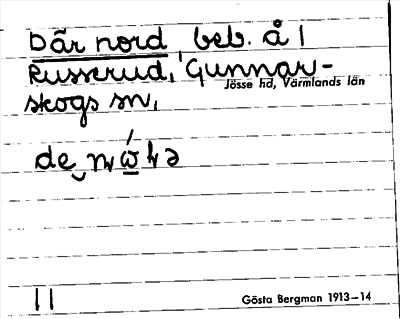 Där nord, beb. å
Russerud, Gunnar-
skogs sn,
Jösse hd, Värmlands län
11
Gösta Bergman 1913–14